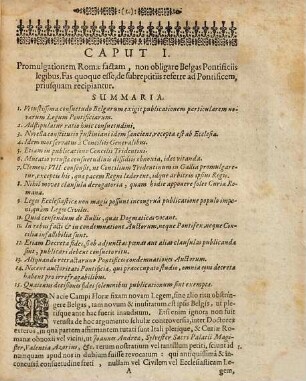 (1.)
CAPUT I.
Promulgationem Romæ factam, non obligare Belgas Pontificiis
legibus. Fas quoque esse, de subreptitiis referre ad Pontificem,
priusquam recipiantur.
SUMMARIA.
1. Vetustissima consuetudo Belgarum exigit publicationem particularem no-
varum Legum Pontificiarum.
2. Adstipulatur ratio huic consuetudini,
3. Justiniani idem sanciens, recepta est ab Ecclesia.
4. Idem mos servatur à Conciliis Generalibus.
5. Etiam in publicatione Concilii Tridentini.
6. Mutatio vetustæ consuetudinis dissidiis obnoxia, ideò vitanda.
7. Clemens VIII. consensit, ut Concilium Tridentinum in Gallia promulgare-
tur, exceptis his, quæ pacem Regni læderent, idque arbitrio ipsius Regis.
8. Nihil movet clausula derogatoria, quam hodie apponere solet Curia Ro-
mana.
9. Lex Ecclesiastica non magis possunt incognita publicatione populo impo-
ni, quàm Leges Civiles.
10. Quid censendum de Bullis, quas Dogmaticas vocant.
11. In rebus facti & in condemnatione Auctorum, neque Pontifex, neque Con-
cilia infallibilia sunt.
12. Etiam Decreta fidei, aliis clausulis publicanda
sint, publicari debent consuetudini.
13. Aliquando retractarunt Pontifices condemnationes Auctorum.
14. Nocent auctoritati Pontificiæ, qui præoccupati studio, omnia ejus decreta
habent pro irrefragabilibus.
15. Quatenus decisiones fidei solemnibus publicationum sint exemptæ.
IN Acie Campi Floræ fixam novam Legem, sine alio ritu obstrin-
gere Belgas, tam novum & inusitatum est ipsis Belgis, ut nuspi-
am priùs ante hac fuerit inauditum. Etsi enim ignora non fuit
versata de hoc argumento scholæ controversia, inter Doctores
affirmantem tutati sunt Itali plerique, & Curiæ Roma-
næ obnoxii vel vicini, ut Joannes Andrea, Sylvester Sacri Palatii Magi-
ster, Valentia, Azorius, &c. verum nostratium vel tantillum periti, sciunt id
nunquam apud nos in dubium fuisse revocatum: qui antiquissima & in-
concussa consuetudine freti, nullam vel Civilem vel Ecclesiasticam Le-
A
gem,